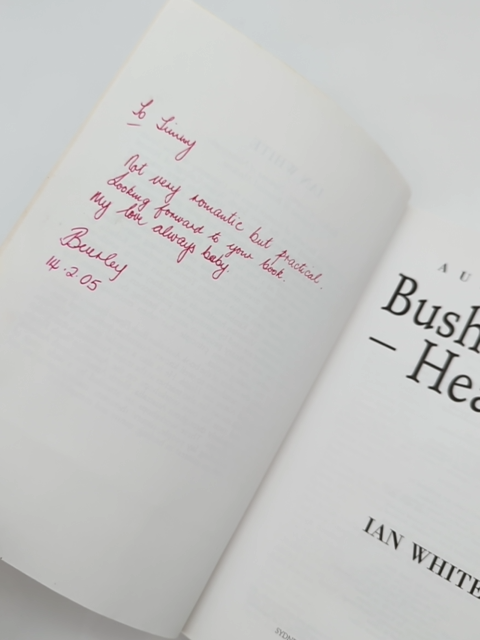 To Jimmy
Not very romantic but practical.
Looking forward to your book.
My love always baby.
Beverley
14.2.05
AU
Bush
– Hea
IAN WHITE
SYDN